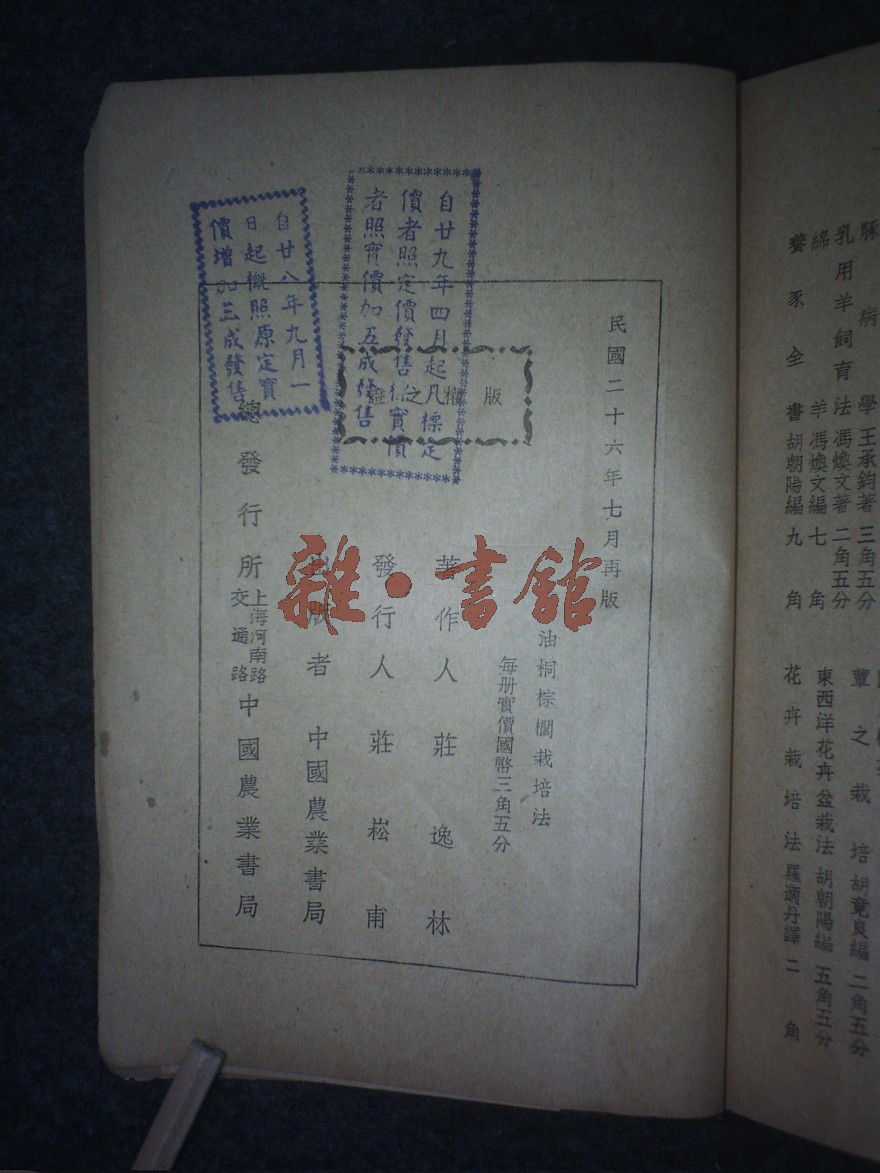 民國二十六年七月再版
油桐棕櫚栽培法
每册實價國幣三角五分
著作人 莊逸林
發行人 莊崧甫
出版者 中國農業書局
總發行所 上海河南路交通路 中國農業書局
版權之證
自廿九年四月起凡標定
價者照定價發售標實價
者照實價加五成發售
自廿八年九月一
日起概照原定實
價增加三成發售
雜·書館
豚病學 王承鈞著 三角五分
乳用羊飼育法 馮煥文著 二角五分
綿羊 馮煥文編 七角
養豕全書 胡朝陽編 九角
蕈之栽培 胡竟良編 二角五分
東西洋花卉盆栽法 胡朝陽編 五角五分
花卉栽培法 羅適丹譯 二角